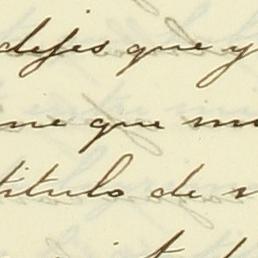 dejes que y
me que
titulo de